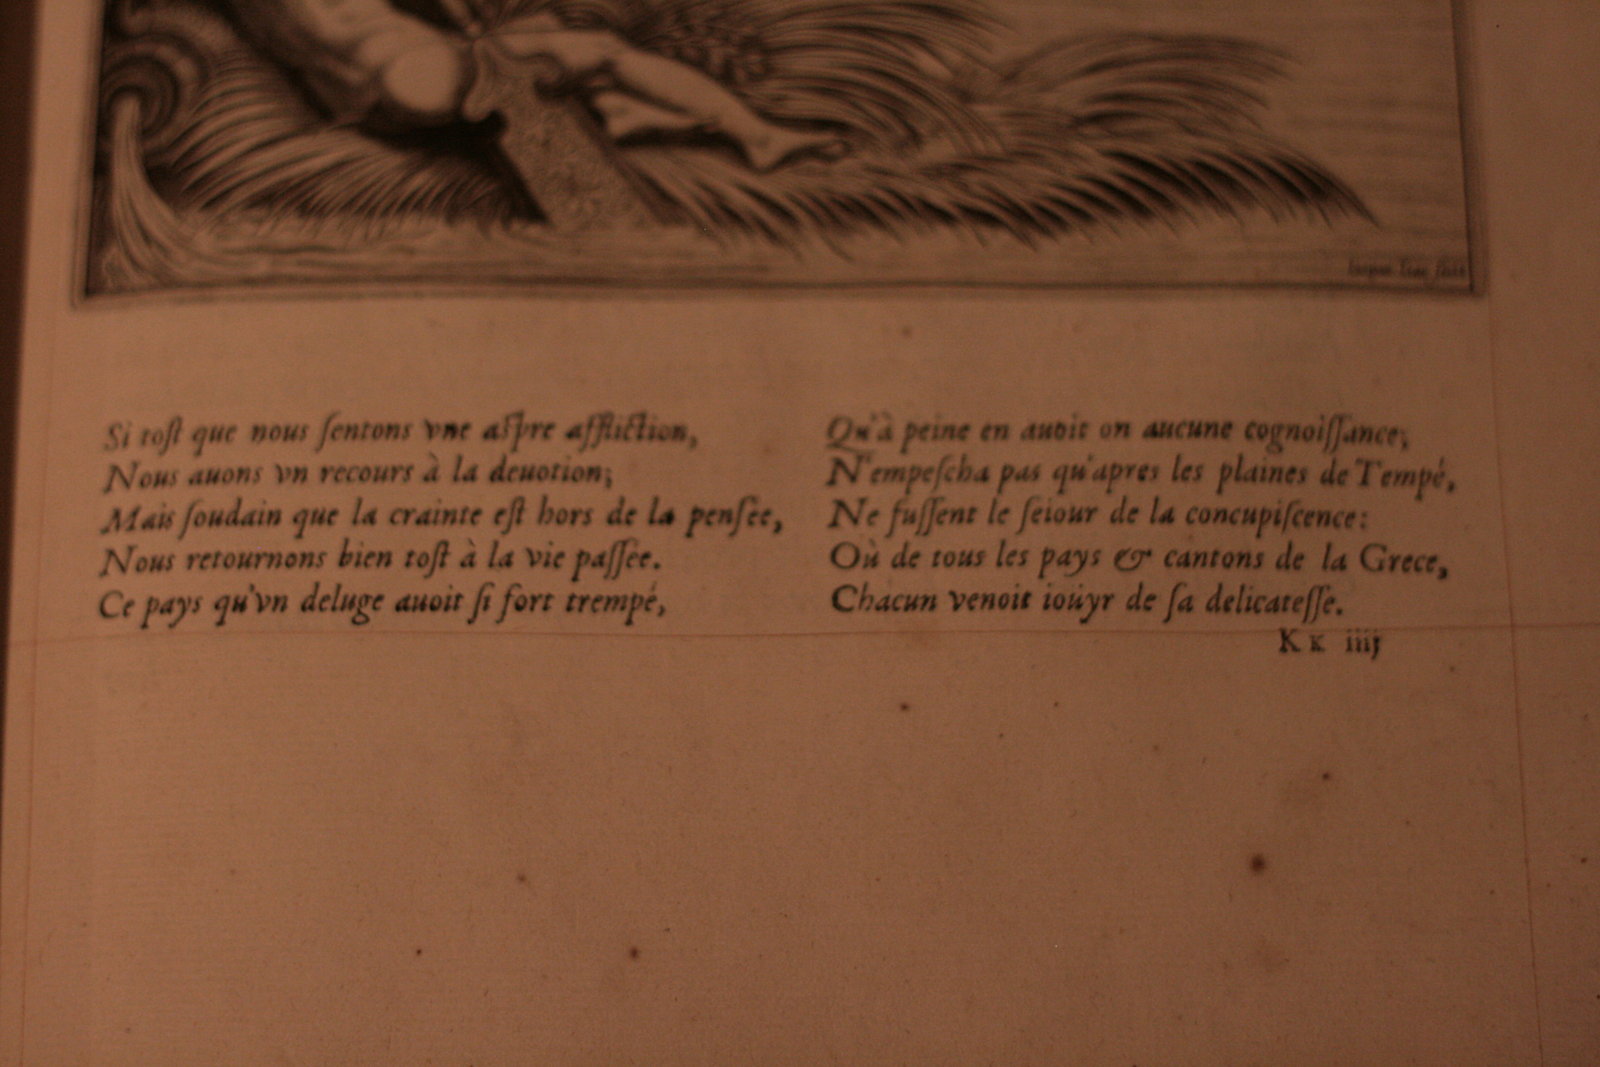 Si toſt que nous ſentons vne aſpre affliction,
Nous auons vn recours à la deuotion;
Mais ſoudain que la crainte eſt hors de la penſée,
Nous retournons bien toſt à la vie paſſée.
Ce pays qu'vn deluge auoit ſi fort trempé,
Qu'à peine en auoit on aucune cognoiſſance;
N'empeſcha pas qu'apres les plaines de Tempé,
Ne fuſſent le ſeiour de la concupiſcence:
Où de tous les pays & cantons de la Grece,
Chacun venoit ioüyr de ſa delicateſſe.
Kk iiij